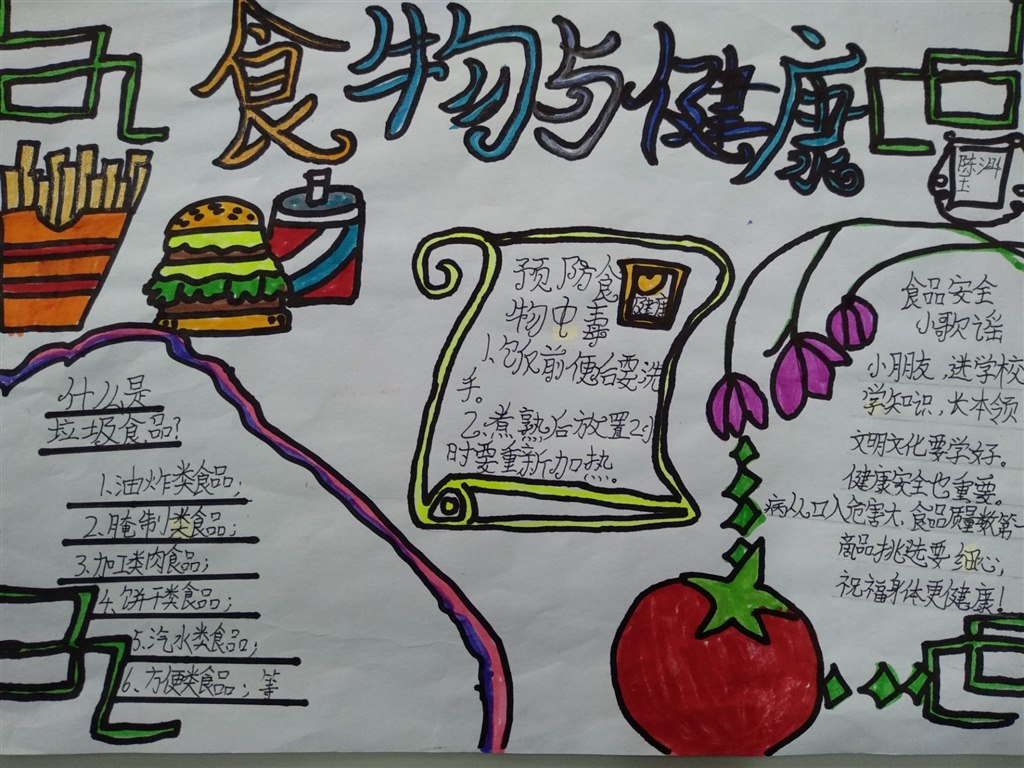 食物与健康
陈
玉
什么是
垃圾食品?
1.油炸类食品;
2.腌制类食品;
3.加工类肉食品;
4.饼干类食品;
5.汽水类食品;
6.方便类食品;等
预防食
物中毒
健康
1.饭前便后要洗
手。
2.煮熟后放置2小
时要重新加热。
食品安全
小歌谣
小朋友,进学校
学知识,长本领
文明文化要学好。
健康安全也重要。
病从口入危害大,食品质量数第一
商品挑选要细心,
祝福身体更健康!